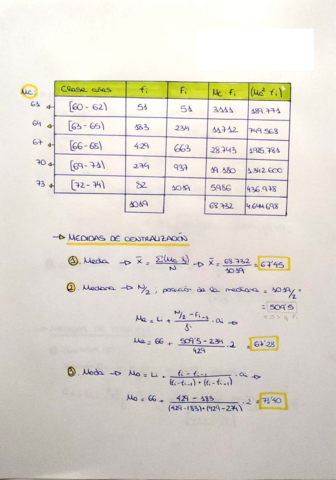 Mc. Clase alas fi Fi Mc·fi (Mc²·fi)
61 [60-62) 51 51 3111 189.771
64 [63-65) 183 234 11.712 749.568
67 [66-68) 429 663 28.743 1925.781
70 [69-71) 274 937 19.180 1.342.600
73 [72-74) 82 1019 5986 436.978
1019 68.732 4.644.698
→ MEDIDAS DE CENTRALIZACIÓN
①. Media → x̄ = Σ(Mc·fi)/N → x̄ = 68.732/1019 = 67'45
②. Mediana → N/2, posición de la mediana = 1019/2 =
= 509'5
Me = Li + (N/2 - Fi-1)/fi · ai →
Me = 66 + (509'5 - 234)/429 · 2 = 67'28
③ Moda → Mo = Li + (fi - fi-1)/((fi - fi-1) + (fi - fi+1)) · ai →
Mo = 66 + (429 - 183)/((429-183)+(429-274)) · 2 = 71'40